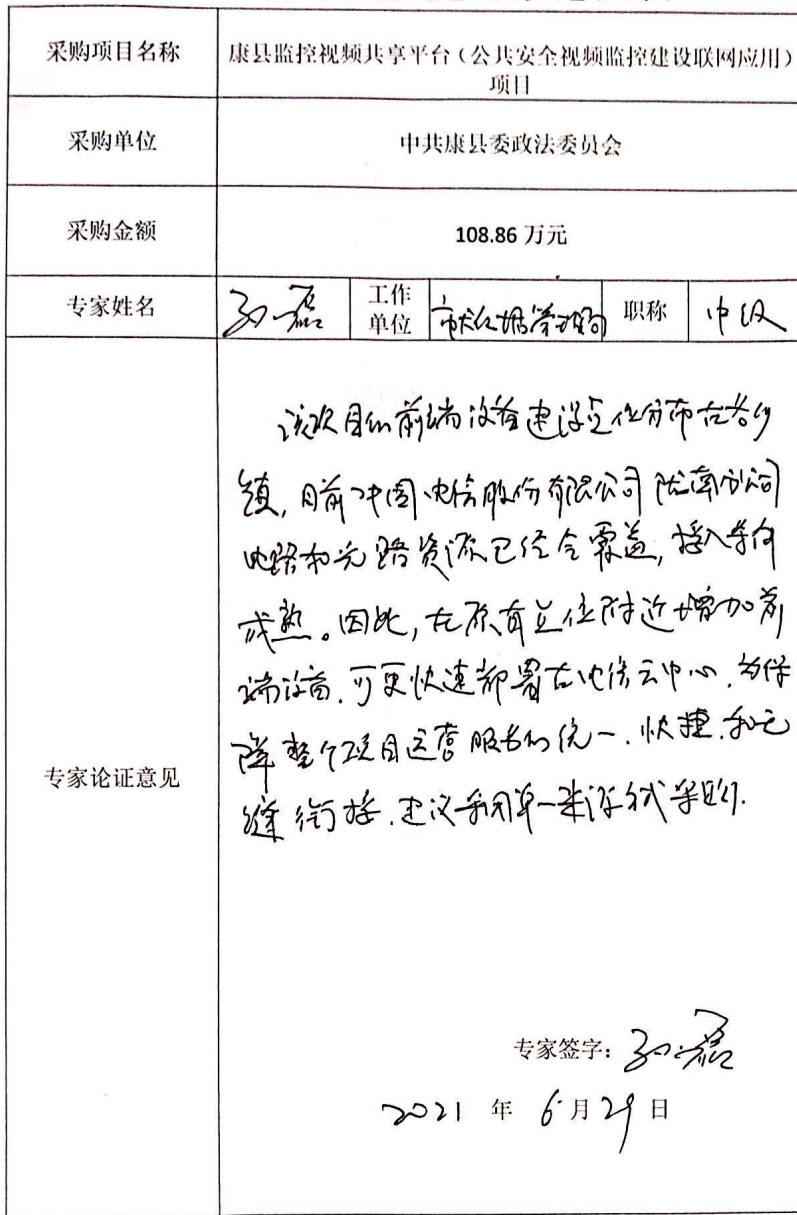 采购项目名称 康县监控视频共享平台（公共安全视频监控建设联网应用）
项目
采购单位 中共康县委政法委员会
采购金额 108.86 万元
专家姓名 孙磊 工作单位 职称 中级
专家论证意见
该项目的前端设备建设点位分布在各乡
镇，目前中国电信股份有限公司陇南分公司
电路和光路资源已经全覆盖，接入条件
成熟。因此，在原有点位附近增加前
端设备，可更快速部署在电信云中心，为保
障整个项目运营服务的统一、快捷、和无
缝衔接，建议采用单一来源方式采购.
专家签字：孙磊
2021 年 6 月 29 日